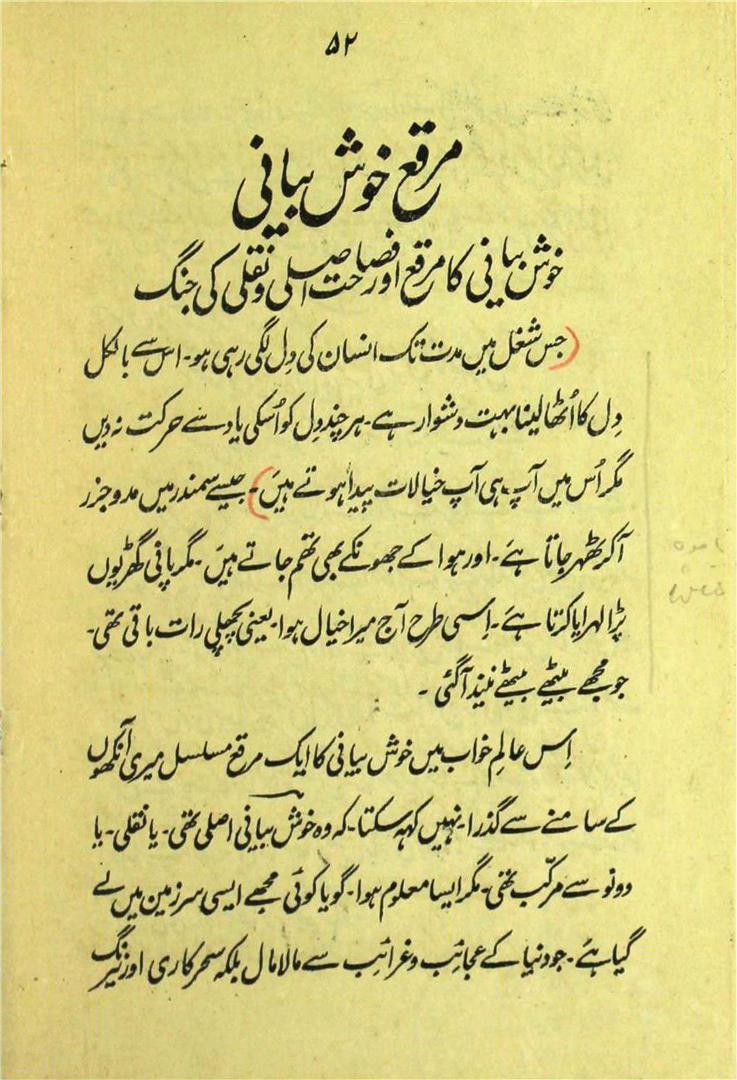 ۵۲
مرقع خوش بیانی
خوش بیانی کا مرقع اور فصاحت اصلی و نقلی کی جنگ
(جس شغل میں مدت تک انسان کی دِل لگی رہی ہو۔ اس سے بالکل
دِل کا اُٹھا لینا بہت دشوار ہے۔ ہر چند دِل کو اُسکی یاد سے حرکت نہ دیں
مگر اُس میں آپ ہی آپ خیالات پیدا ہوتے ہیں)۔ جیسے سمندر میں مدوجزر
آکر ٹھہر جاتا ہے۔ اور ہوا کے جھونکے بھی تھم جاتے ہیں۔ مگر پانی گھڑیوں
پڑا لہرایا کرتا ہے۔ اِسی طرح آج میرا خیال ہوا۔ یعنی پچھلی رات باقی تھی۔
جو مجھے بیٹھے بیٹھے نیند آگئی۔
اِس عالمِ خواب میں خوش بیانی کا ایک مرقع مسلسل میری آنکھوں
کے سامنے سے گذرا۔ نہیں کہہ سکتا۔ کہ وہ خوش بیانی اصلی تھی۔ یا نقلی۔ یا
دونو سے مرکّب تھی۔ مگر ایسا معلوم ہوا۔ گویا کوئی مجھے ایسی سرزمین میں لے
گیا ہے۔ جو دنیا کے عجائب و غرائب سے مالا مال بلکہ سحر کاری اور نیرنگ